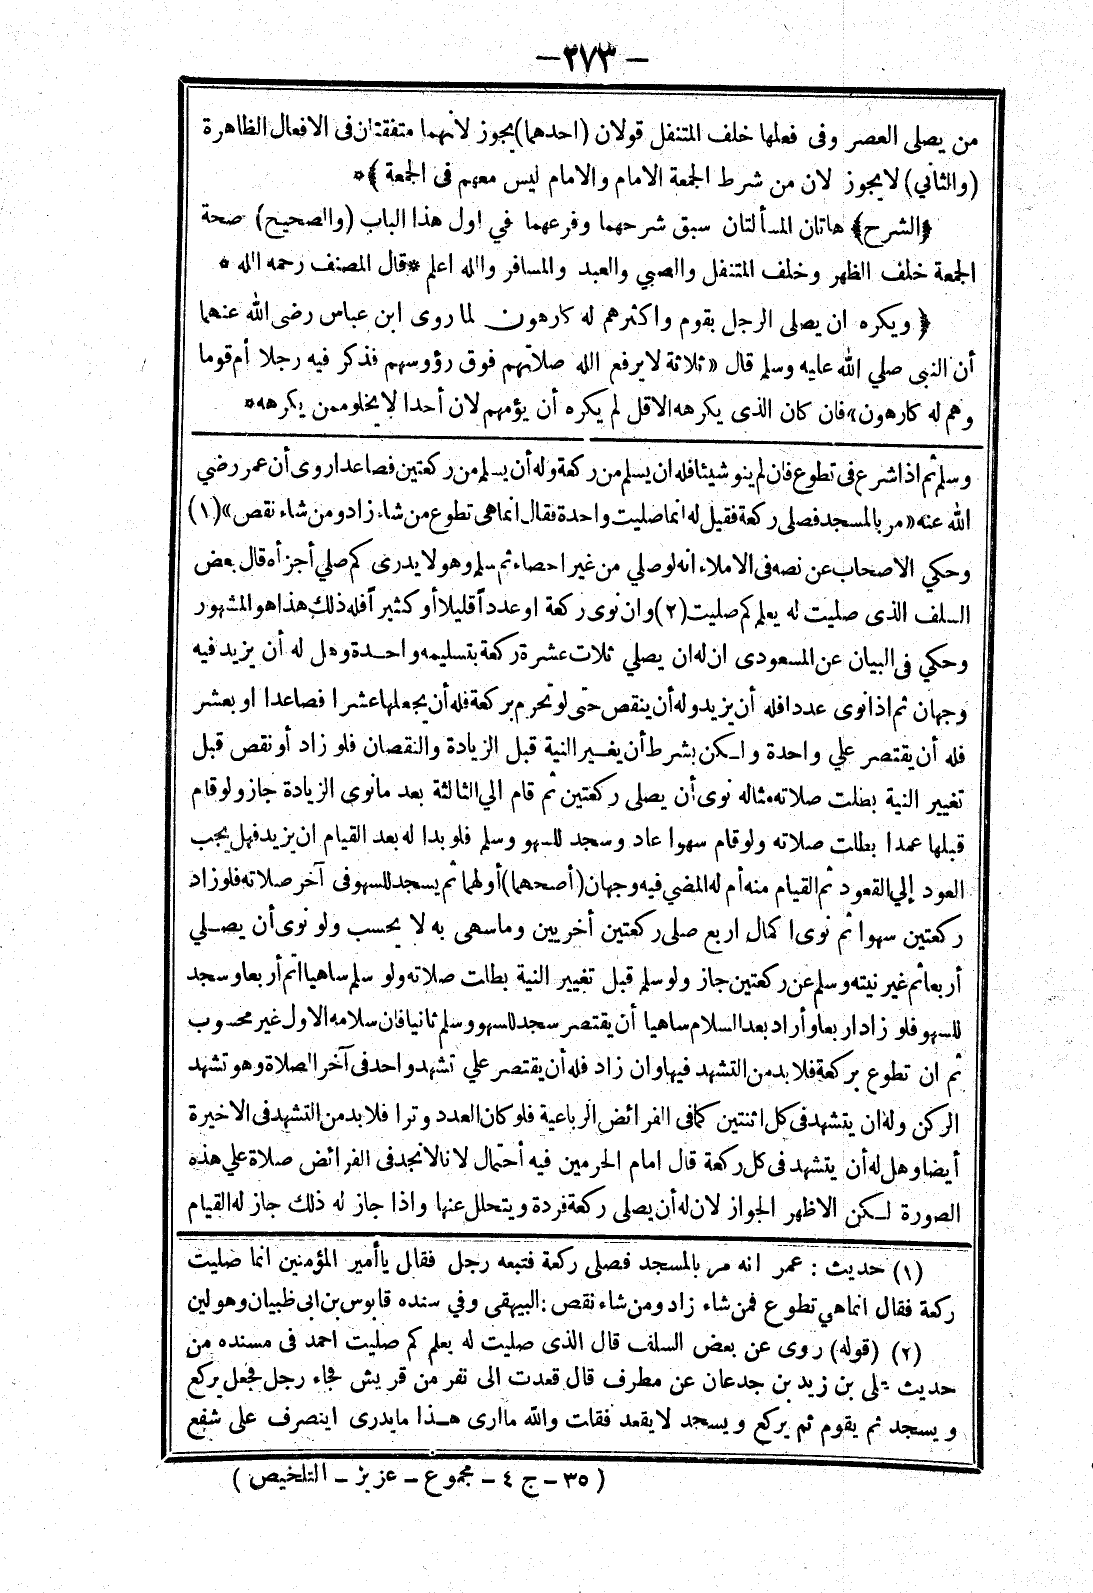 — ٢٧٣ —
من يصلى العصر وفى فعلها خلف المتنفل قولان (احدهما) يجوز لأنهما متفقتان فى الافعال الظاهرة
(والثاني) لا يجوز لان من شرط الجمعة الامام والامام ليس معهم فى الجمعة ﴾ *
﴿الشرح﴾ هاتان المسألتان سبق شرحهما وفرعهما في اول هذا الباب (والصحيح) صحة
الجمعة خلف الظهر وخلف المتنفل والصبي والعبد والمسافر والله اعلم * قال المصنف رحمه الله *
﴿ ويكره ان يصلى الرجل بقوم واكثرهم له كارهون لما روى ابن عباس رضى الله عنهما
أن النبى صلي الله عليه وسلم قال «ثلاثة لا يرفع الله صلاتهم فوق رؤوسهم فذكر فيه رجلا أم قوما
وهم له كارهون» فان كان الذى يكرهه الاقل لم يكره أن يؤمهم لان أحدا لا يخلو ممن يكرهه *
وسلم ثم اذا شرع فى تطوع فان لم ينو شيئا فله ان يسلم من ركعة وله أن يسلم من ركعتين فصاعدا روى أن عمر رضي
الله عنه «مر بالمسجد فصلى ركعة فقيل له انما صليت واحدة فقال انما هى تطوع من شاء زاد ومن شاء نقص» (١)
وحكي الاصحاب عن نصه فى الاملاء انه لو صلي من غير احصاء ثم سلم وهو لا يدرى كم صلي أجزأه قال بعض
السلف الذى صليت له يعلم كم صليت (٢) وان نوى ركعة او عدداً قليلا أو كثيراً فله ذلك هذا هو المشهور
وحكي فى البيان عن المسعودى ان له ان يصلي ثلاث عشرة ركعة بتسليمه واحدة وهل له أن يزيد فيه
وجهان ثم اذا نوى عددا فله أن يزيد وله أن ينقص حتى لو تحرم بركعة فله أن يجعلها عشرا فصاعدا او بعشر
فله أن يقتصر علي واحدة ولكن بشرط أن يغير النية قبل الزيادة والنقصان فلو زاد أو نقص قبل
تغيير النية بطلت صلاته مثاله نوى أن يصلى ركعتين ثم قام الي الثالثة بعد ما نوى الزيادة جاز ولو قام
قبلها عمدا بطلت صلاته ولو قام سهوا عاد وسجد للسهو وسلم فلو بدا له بعد القيام ان يزيد فهل يجب
العود إلي القعود ثم القيام منه أم له المضي فيه وجهان (أصحهما) أولهما ثم يسجد للسهو فى آخر صلاته فلو زاد
ركعتين سهوا ثم نوى اكمال اربع صلى ركعتين أخريين وما سهى به لا يحسب ولو نوى أن يصلي
أربعا ثم غير نيته وسلم عن ركعتين جاز ولو سلم قبل تغيير النية بطلت صلاته ولو سلم ساهيا اتم أربعا وسجد
للسهو فلو زاد اربعا وأراد بعد السلام ساهيا أن يقتصر سجد للسهو وسلم ثانيا فان سلامه الاول غير محسوب
ثم ان تطوع بركعة فلا بد من التشهد فيها وان زاد فله أن يقتصر علي تشهد واحد فى آخر الصلاة وهو تشهد
الركن وله ان يتشهد فى كل اثنتين كما فى الفرائض الرباعية فلو كان العدد وترا فلا بد من التشهد فى الاخيرة
أيضا وهل له أن يتشهد فى كل ركعة قال امام الحرمين فيه أحتمال لانا لا نجد فى الفرائض صلاة علي هذه
الصورة لكن الاظهر الجواز لان له أن يصلى ركعة فردة ويتحلل عنها واذا جاز له ذلك جاز له القيام
(١) حديث : عمر انه مر بالمسجد فصلى ركعة فتبعه رجل فقال يا أمير المؤمنين انما صليت
ركعة فقال انما هي تطوع فمن شاء زاد ومن شاء نقص : البيهقى وفي سنده قابوس بن ابى ظبيان وهو لين
(٢) (قوله) روى عن بعض السلف قال الذى صليت له يعلم كم صليت احمد فى مسنده من
حديث على بن زيد بن جدعان عن مطرف قال قعدت الى نفر من قريش فجاء رجل فجعل يركع
ويسجد ثم يقوم ثم يركع ويسجد لا يقعد فقلت والله ما ارى هذا ما يدرى اينصرف على شفع
(٣٥ – ج ٤ – مجموع – عزيز – التلخيص)